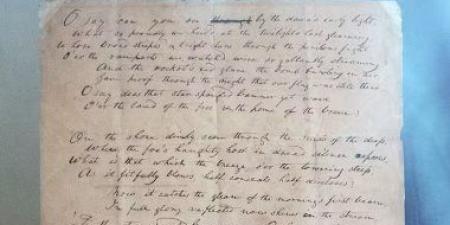 O say can you see through by the dawn's early light,
What so proudly we hail'd at the twilight's last gleaming,
Whose broad stripes & bright stars through the perilous fight
O'er the ramparts we watch'd, were so gallantly streaming?
And the rocket's red glare, the bomb bursting in air,
Gave proof through the night that our flag was still there
O say does that star-spangled banner yet wave
O'er the land of the free & the home of the brave?
On the shore dimly seen through the mists of the deep,
Where the foe's haughty host in dread silence reposes,
What is that which the breeze, o'er the towering steep,
As it fitfully blows, half conceals, half discloses?
Now it catches the gleam of the morning's first beam,
In full glory reflected now shines in the stream